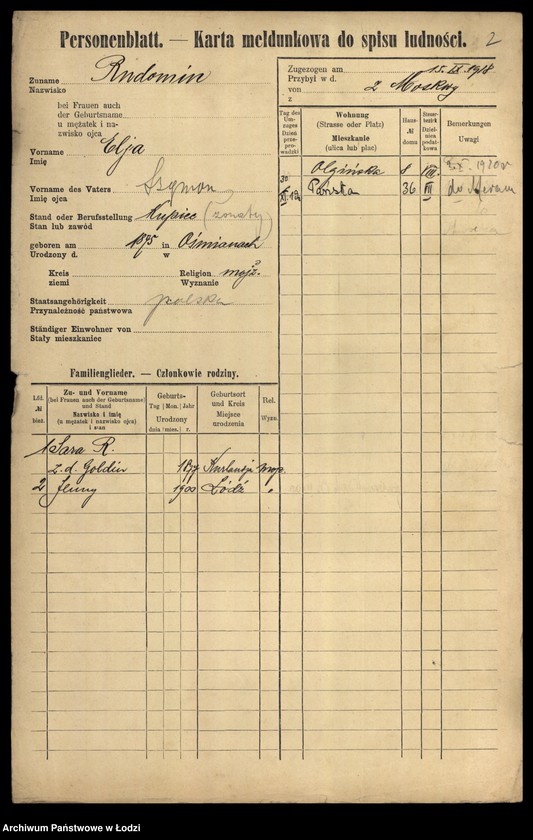 Personenblatt. — Karta meldunkowa do spisu ludności.
2
Zuname Rudomin
Nazwisko
bei Frauen auch
der Geburtsname
u mężatek i na-
zwisko ojca
Vorname Elja
Imię
Vorname des Vaters Szymon
Imię ojca
Stand oder Berufsstellung Kupiec (żonaty)
Stan lub zawód
geboren am 1875 in Ośmianach
Urodzony d. w
Kreis Religion mojż.
ziemi Wyznanie
Staatsangehörigkeit polska
Przynależność państwowa
Ständiger Einwohner von
Stały mieszkaniec
Zugezogen am 15. IX. 1918
Przybył w d.
von z Moskwy
z
Tag des Um-zuges Dzień prze-prowadzki
Wohnung
(Strasse oder Platz)
Mieszkanie
(ulica lub plac)
Haus-
№
domu
Bemerkungen
Uwagi
Olgińska 8 VIII.
1920 r
30
XI. 19 Pańska 36 III do
Familienglieder. — Członkowie rodziny.
Lfd.
№
bież.
Zu- und Vorname
(bei Frauen auch der Geburtsname)
und Stand
Nazwisko i imię
(u mężatek i nazwisko ojca)
i stan
Geburts-
Tag | Mon. | Jahr
Urodzony
dnia | mies. | r.
Geburtsort
und Kreis
Miejsce
urodzenia
Rel.
Wyzn.
1 Sara R.
z. d. Goldin 1877 Kurlandja mojż.
2 Jenny 1900 Łódź "
Archiwum Państwowe w Łodzi